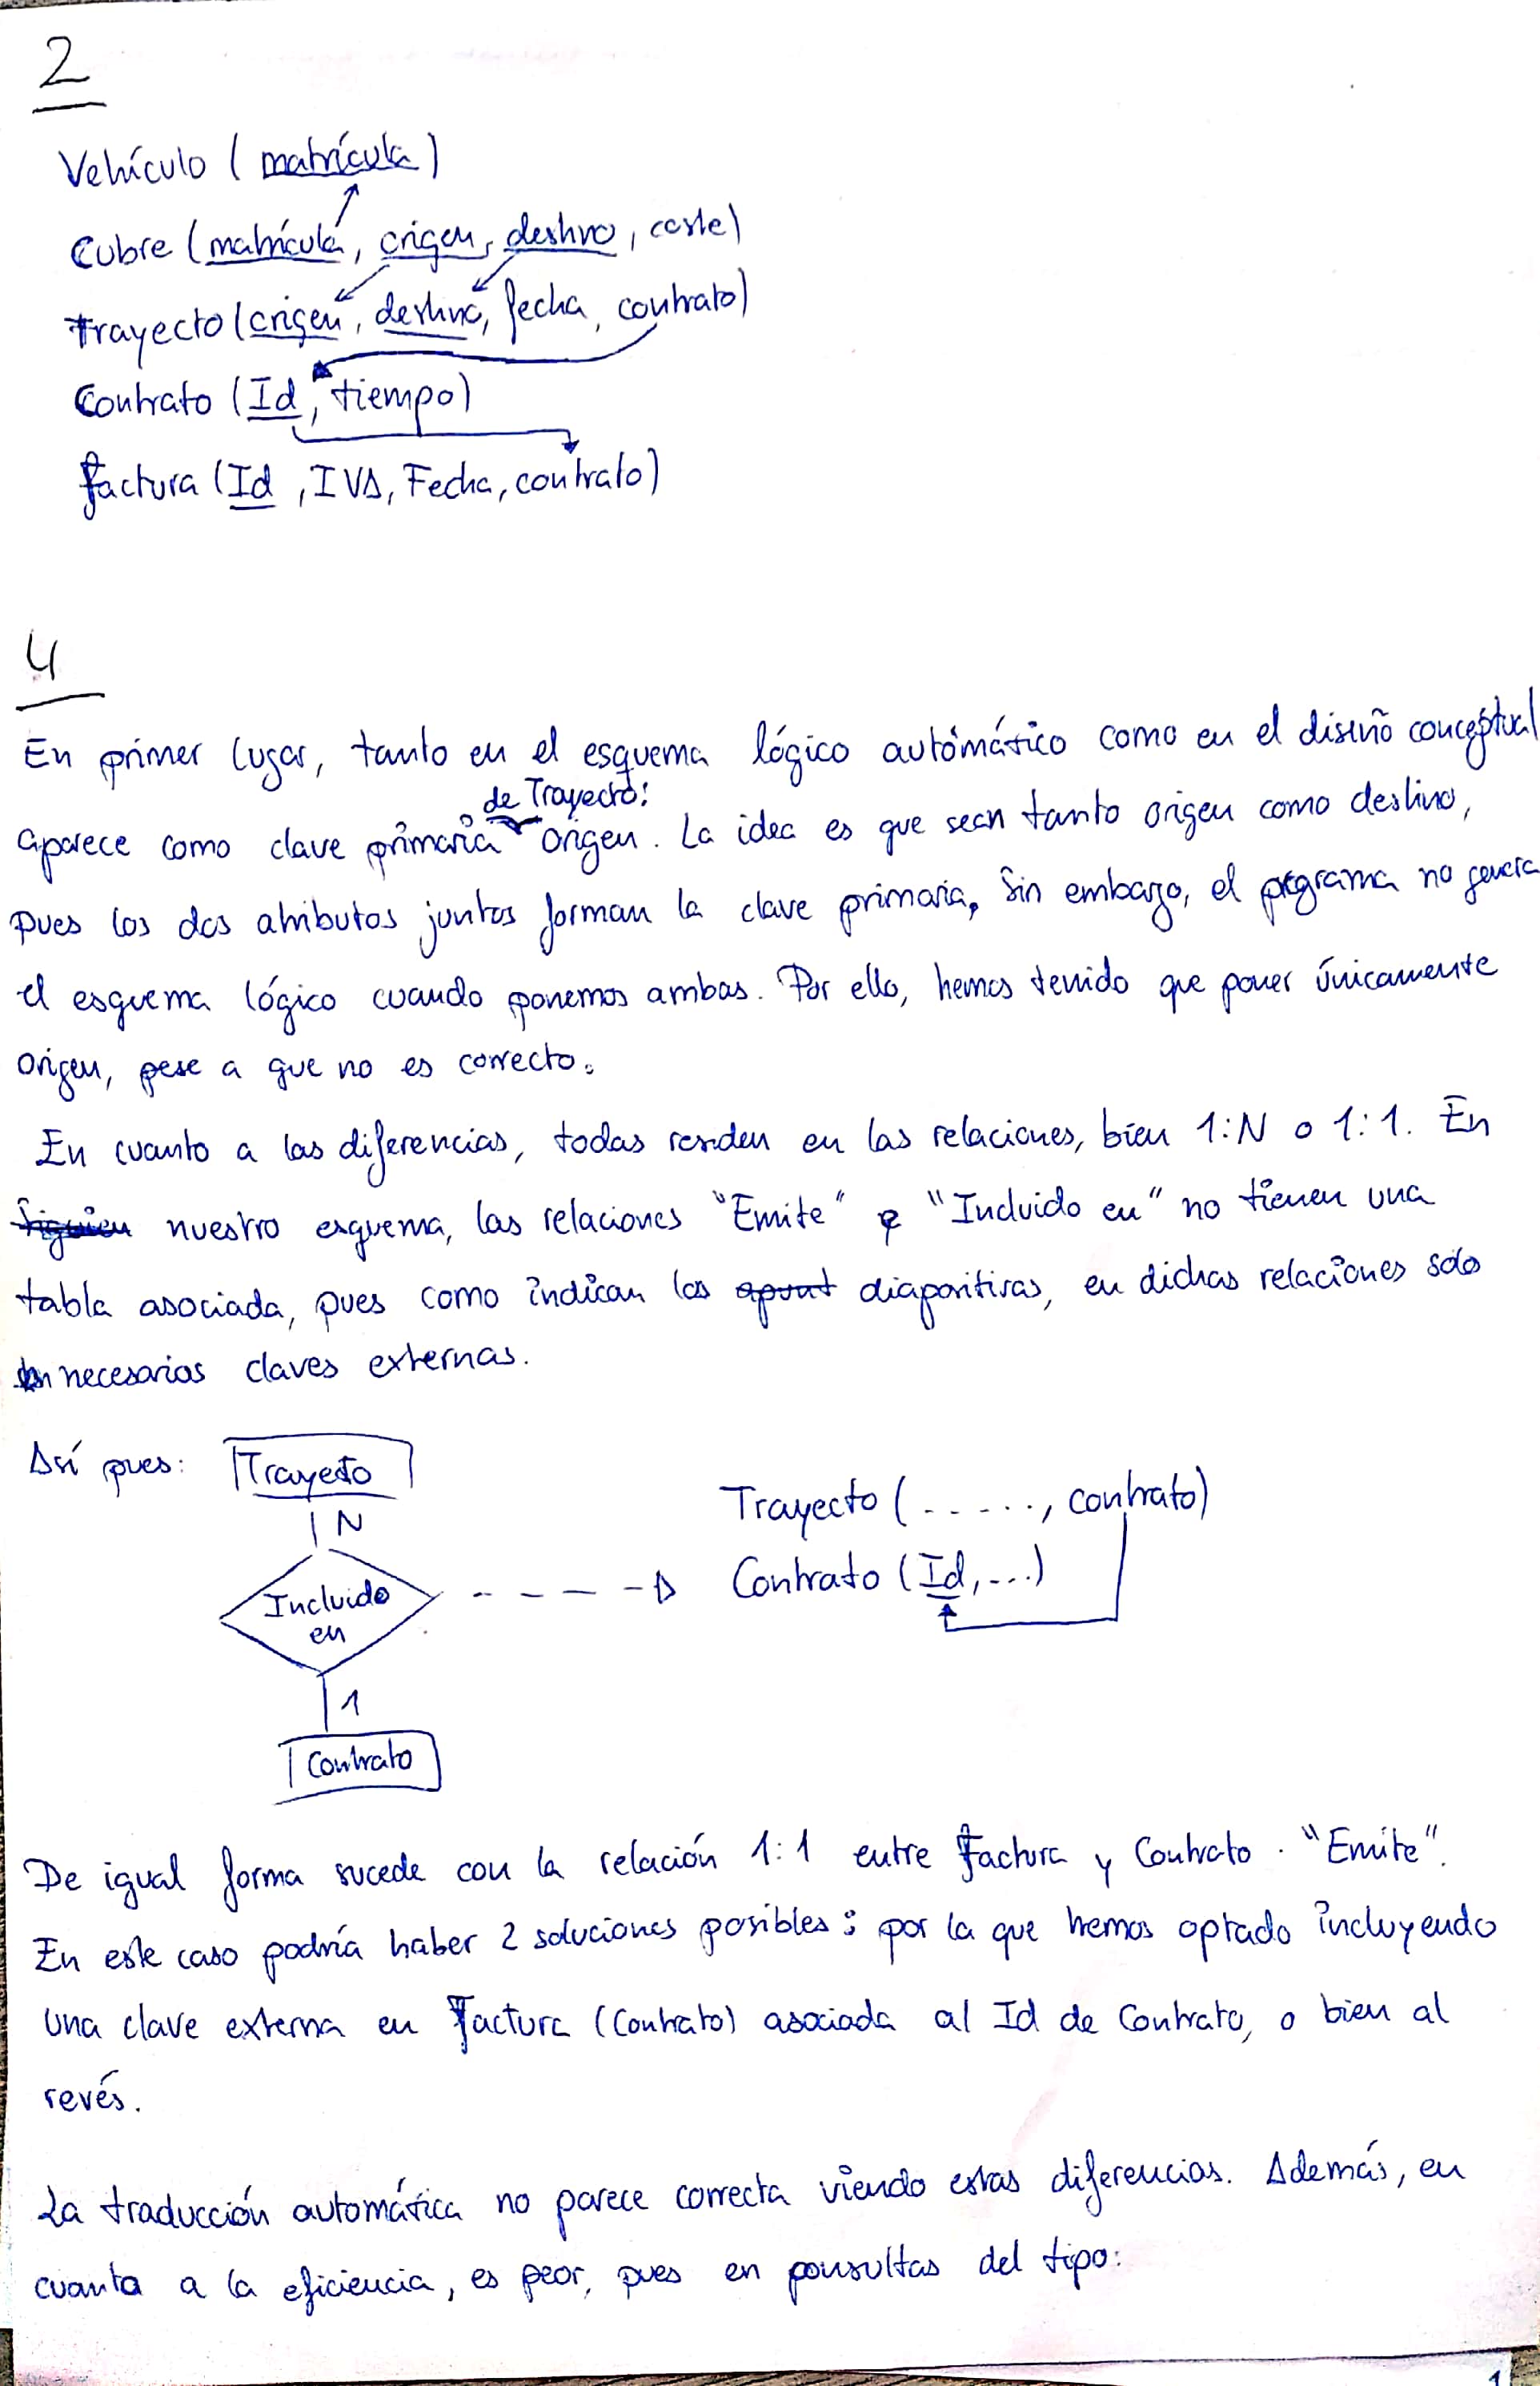 2
Vehículo (matrícula)
Cubre (matrícula, origen, destino, coste)
Trayecto (origen, destino, fecha, contrato)
Contrato (Id, tiempo)
Factura (Id, IVA, Fecha, contrato)
4
En primer lugar, tanto en el esquema lógico automático como en el diseño conceptual
de Trayecto:
aparece como clave primaria origen. La idea es que sean tanto origen como destino,
pues los dos atributos juntos forman la clave primaria, Sin embargo, el programa no genera
el esquema lógico cuando ponemos ambas. Por ello, hemos tenido que poner únicamente
origen, pese a que no es correcto.
En cuanto a las diferencias, todas residen en las relaciones, bien 1:N o 1:1. En
nuestro esquema, las relaciones "Emite" e "Incluido en" no tienen una
tabla asociada, pues como indican las diapositivas, en dichas relaciones solo
son necesarias claves externas.
Así pues:
Trayecto
N
Incluido
en
1
Contrato
Trayecto (- - - - - -, contrato)
Contrato (Id, ...)
De igual forma sucede con la relación 1:1 entre Factura y Contrato. "Emite".
En este caso podría haber 2 soluciones posibles: por la que hemos optado incluyendo
una clave externa en Factura (Contrato) asociada al Id de Contrato, o bien al
revés.
La traducción automática no parece correcta viendo estas diferencias. Además, en
cuanto a la eficiencia, es peor, pues en consultas del tipo:
1